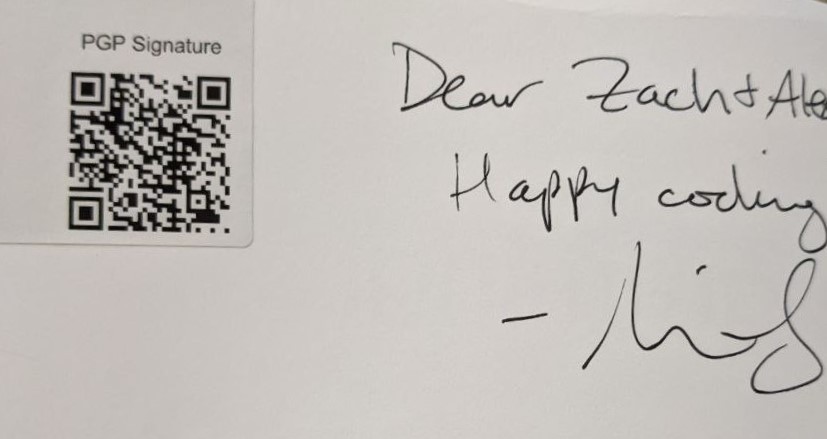 PGP Signature
Dear Zach +
Happy coding
-